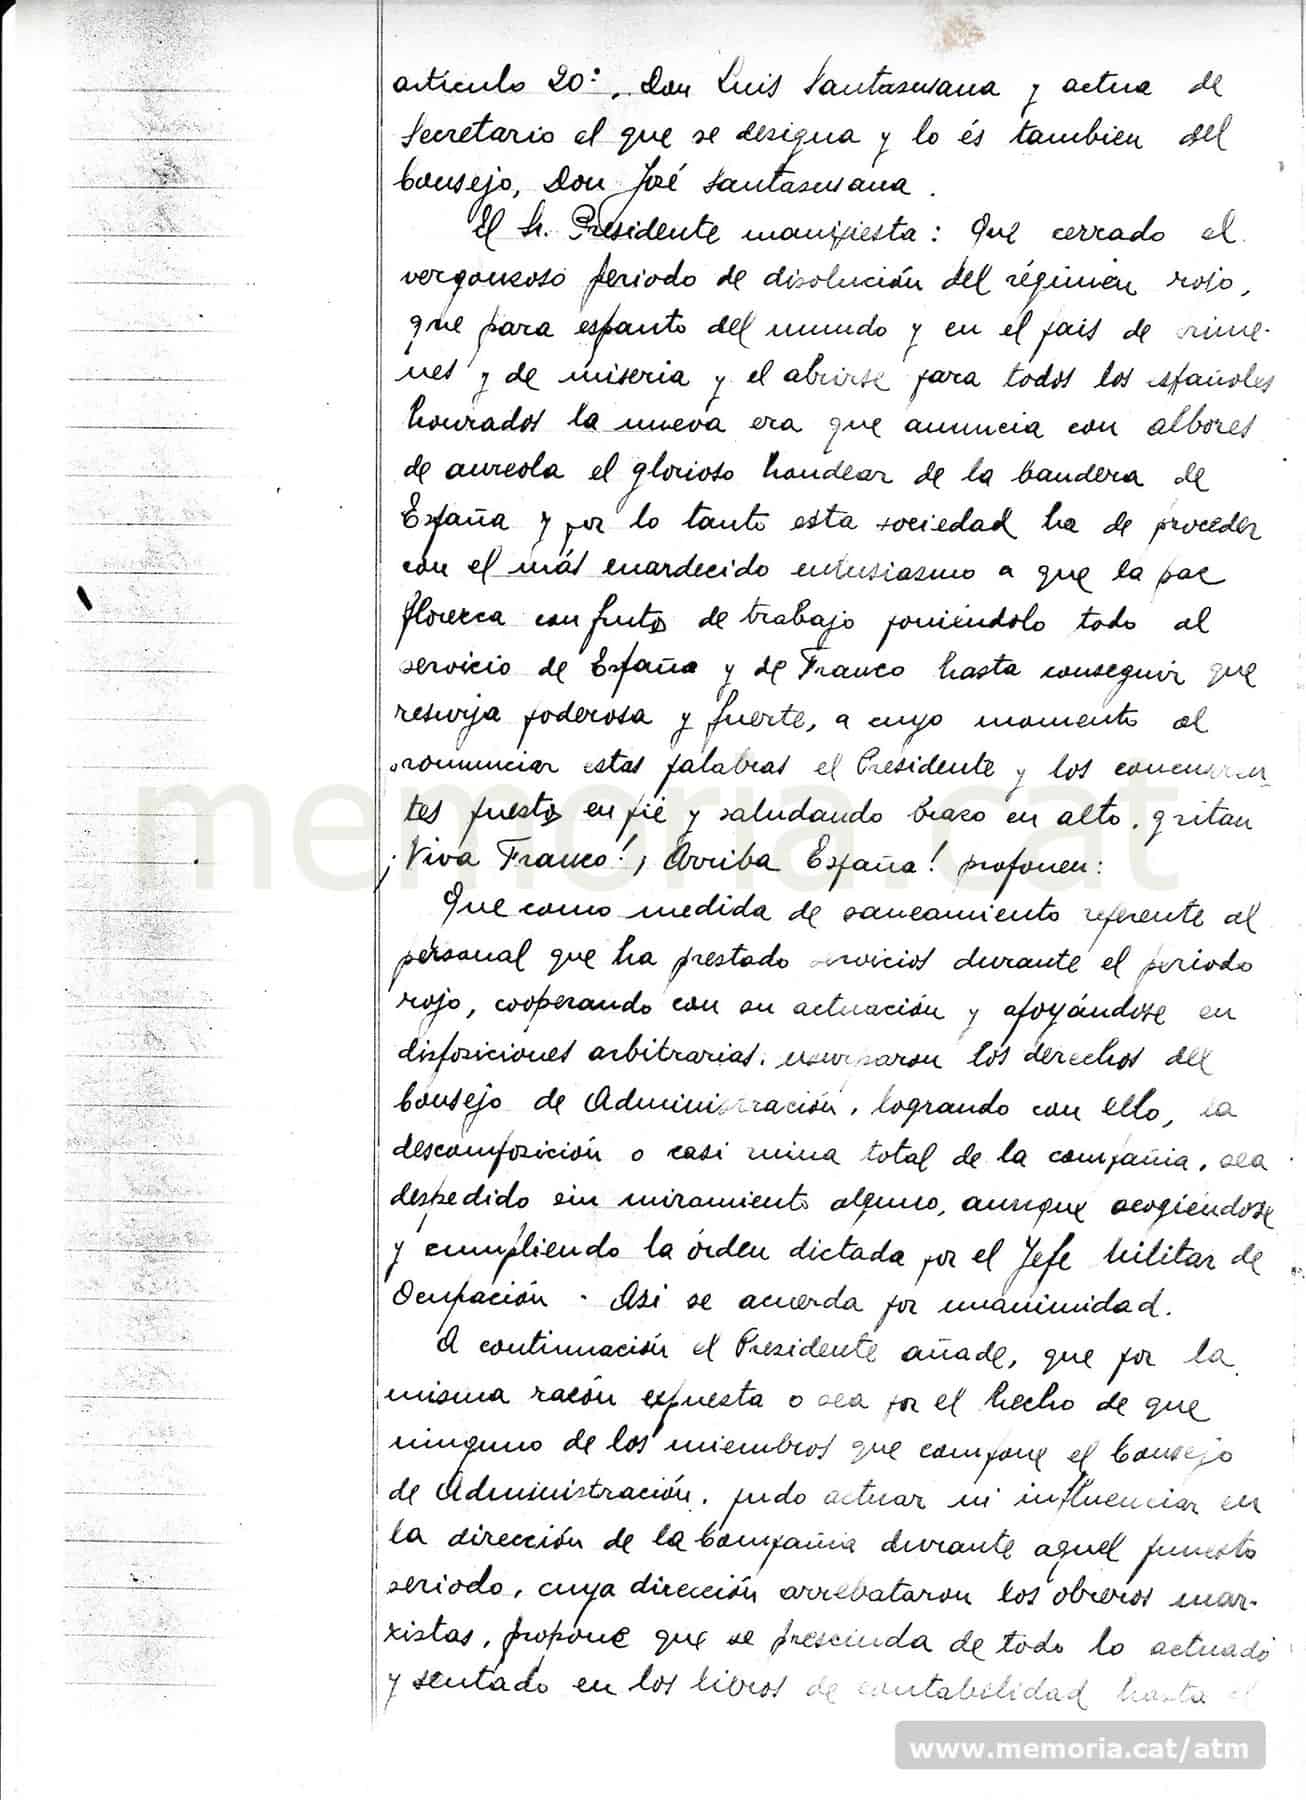 artículo 20º, Don Luis Santasusana y actua de
Secretario el que se designa y lo és tambien del
Consejo, Don José Santasusana.
El Sr. Presidente manifiesta: Que cerrado el
vergonzoso periodo de disolución del régimen rojo,
que para espanto del mundo y en el pais de crime-
nes y de miseria y el abrirse para todos los españoles
honrados la nueva era que anuncia con albores
de aureola el glorioso hondear de la bandera de
España y por lo tanto esta sociedad ha de proceder
con el más enardecido entusiasmo a que la paz
florezca con frutos de trabajo poniéndolo todo al
servicio de España y de Franco hasta conseguir que
resurja poderosa y fuerte, a cuyo momento al
pronunciar estas palabras el Presidente y los concurren-
tes puestos en pié y saludando brazo en alto, gritan
¡Viva Franco!, ¡Arriba España! proponen:
Que como medida de saneamiento referente al
personal que ha prestado servicios durante el periodo
rojo, cooperando con su actuación y apoyándose en
disposiciones arbitrarias, usurparon los derechos del
Consejo de Administración, logrando con ello, la
descomposición o casi ruina total de la compañia, sea
despedido sin miramiento alguno, aunque acogiéndose
y cumpliendo la órden dictada por el Jefe Militar de
Ocupación. Asi se acuerda por unanimidad.
A continuación el Presidente añade, que por la
misma razón expuesta o sea por el hecho de que
ninguno de los miembros que compone el Consejo
de Administración, pudo actuar ni influenciar en
la dirección de la Compañia durante aquel funesto
periodo, cuya dirección arrebataron los obreros mar-
xistas, propone que se prescinda de todo lo actuado
y sentado en los libros de contabilidad hasta el
memoria.cat
www.memoria.cat/atm